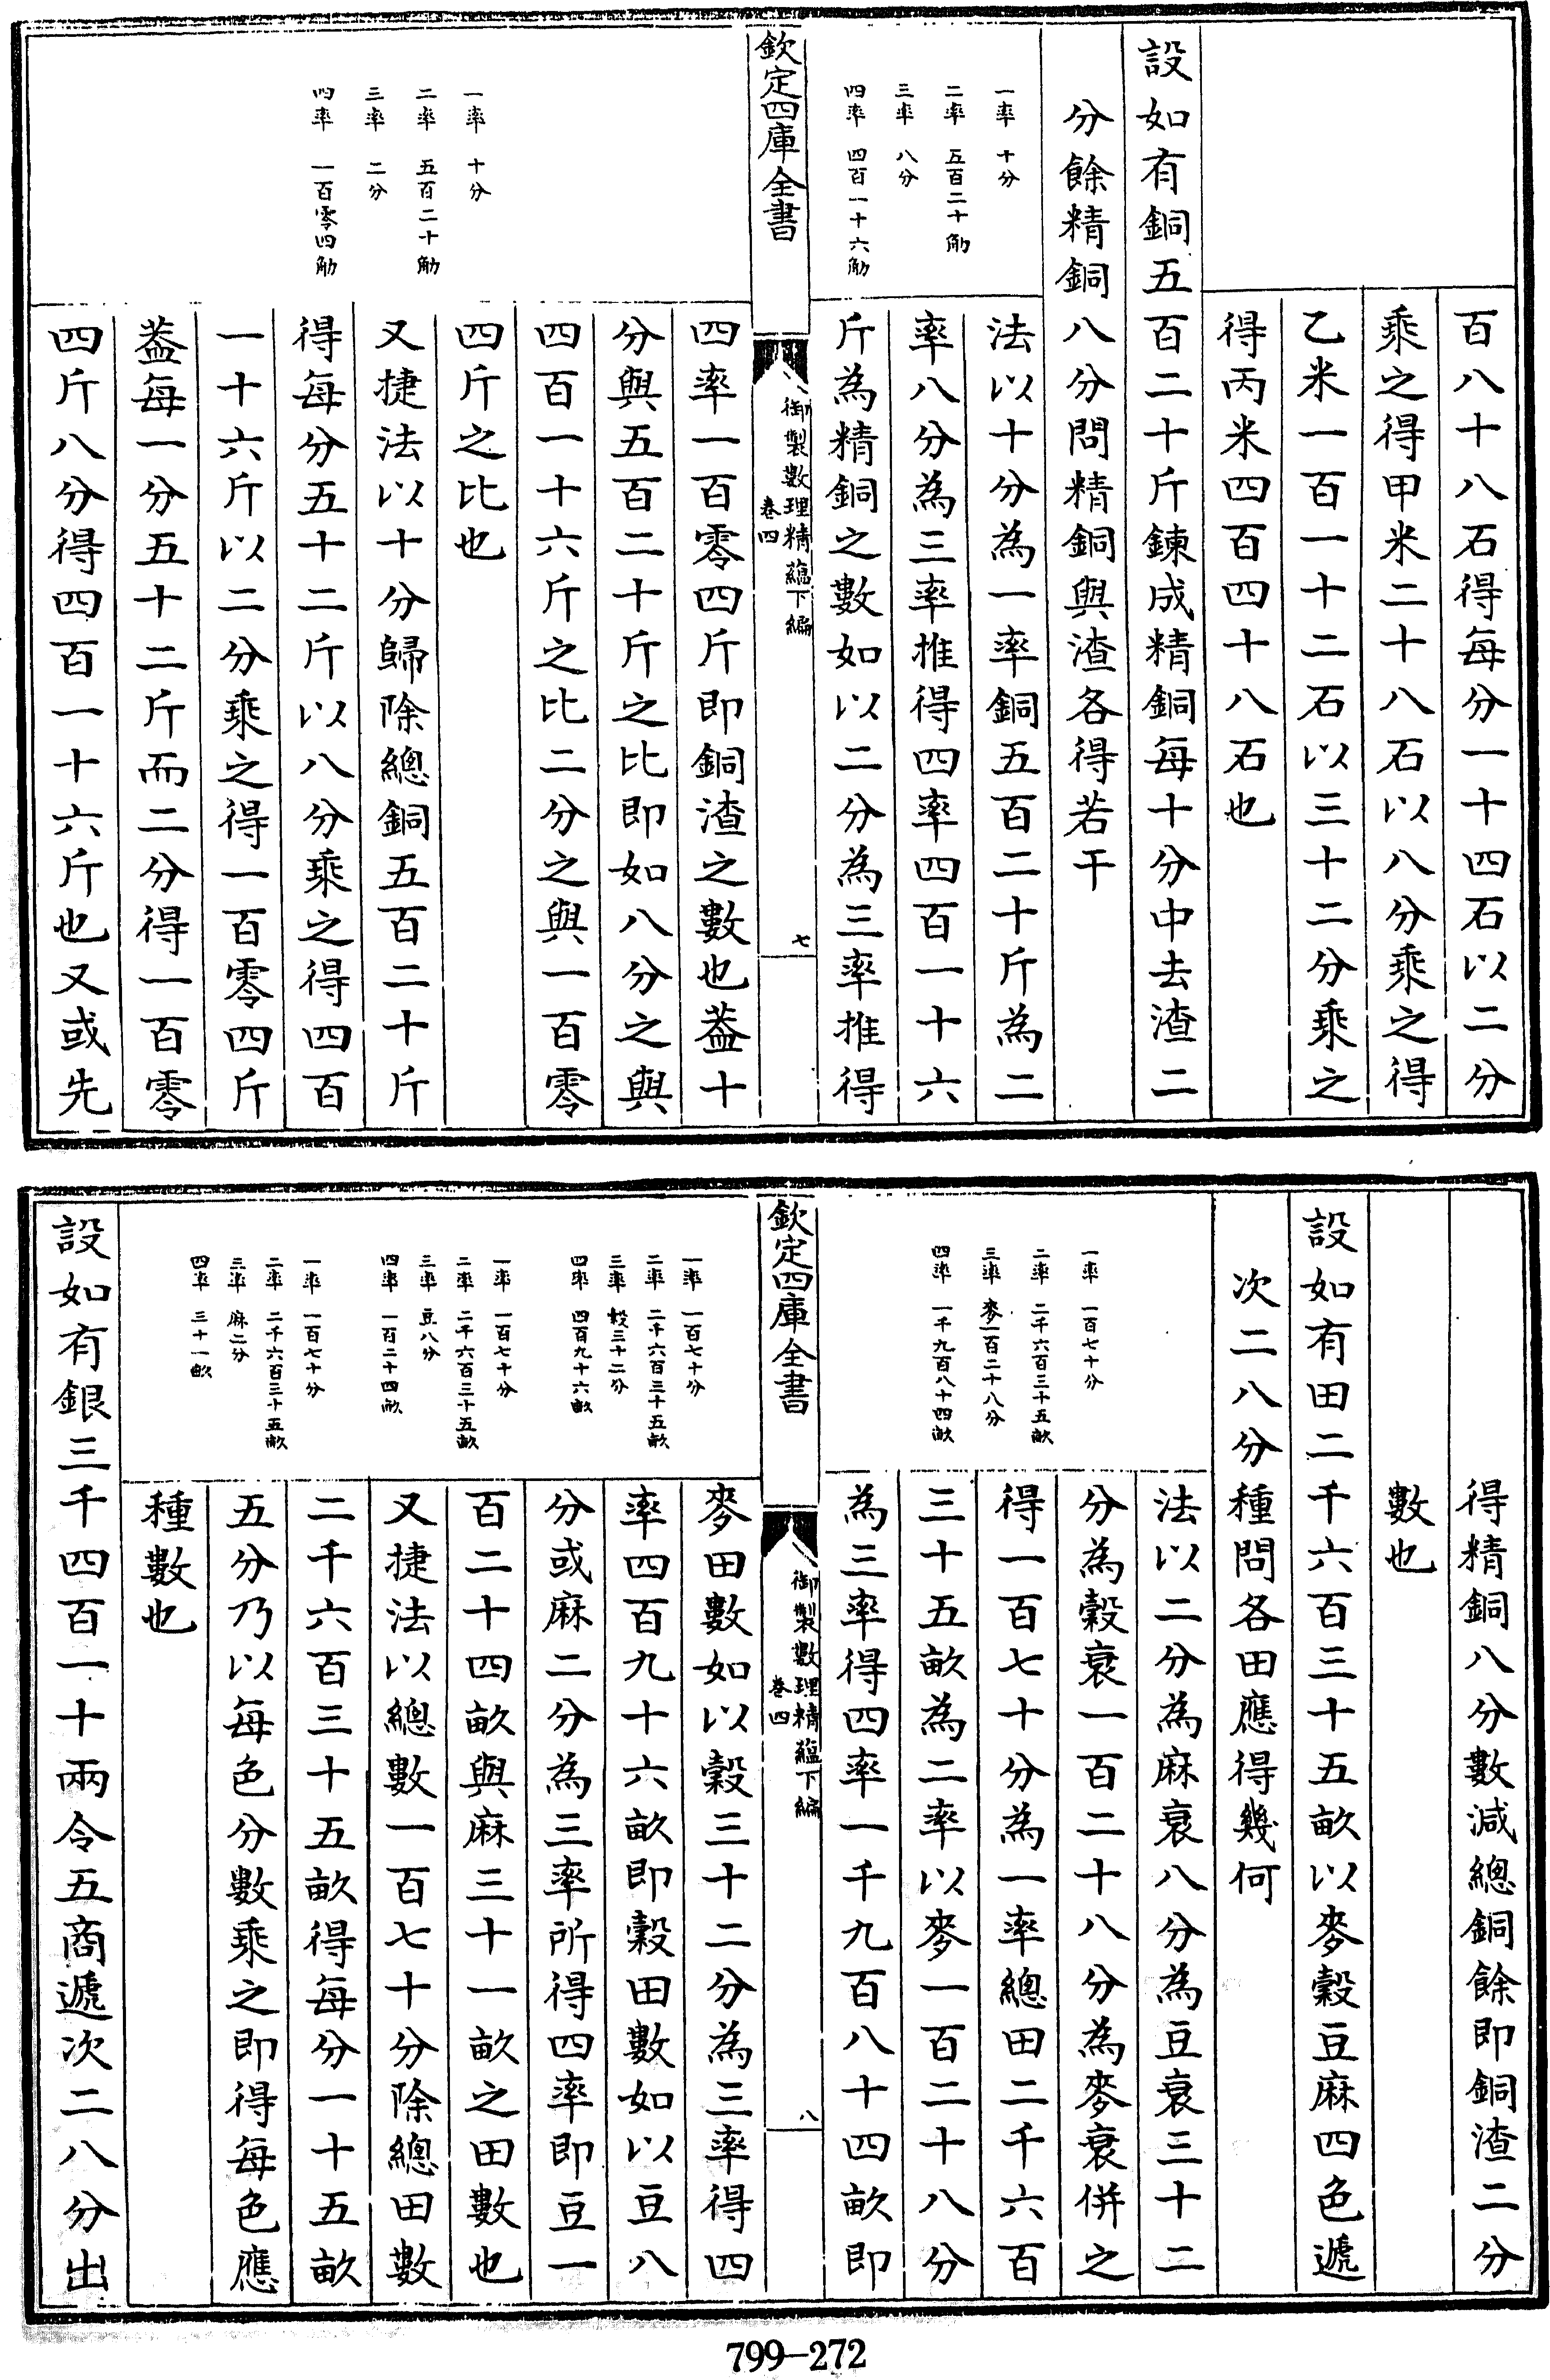 百八十八石得每分一十四石以二分
乘之得甲米二十八石以八分乘之得
乙米一百一十二石以三十二分乘之
得丙米四百四十八石也
設如有銅五百二十斤鍊成精銅每十分中去渣二
分餘精銅八分問精銅與渣各得若干
一率 十分
二率 五百二十觔
三率 八分
四率 四百一十六觔
法以十分為一率銅五百二十斤為二
率八分為三率推得四率四百一十六
斤為精銅之數如以二分為三率推得
欽定四庫全書
御製數理精蘊下編
卷四
七
一率 十分
二率 五百二十觔
三率 二分
四率 一百零四觔
四率一百零四斤即銅渣之數也葢十
分與五百二十斤之比即如八分之與
四百一十六斤之比二分之與一百零
四斤之比也
又捷法以十分歸除總銅五百二十斤
得每分五十二斤以八分乘之得四百
一十六斤以二分乘之得一百零四斤
葢每一分五十二斤而二分得一百零
四斤八分得四百一十六斤也又或先
得精銅八分數減總銅餘即銅渣二分
數也
設如有田二千六百三十五畝以麥穀豆麻四色遞
次二八分種問各田應得幾何
一率 一百七十分
二率 二千六百三十五畝
三率 麥一百二十八分
四率 一千九百八十四畝
法以二分為麻衰八分為豆衰三十二
分為穀衰一百二十八分為麥衰併之
得一百七十分為一率總田二千六百
三十五畝為二率以麥一百二十八分
為三率得四率一千九百八十四畝即
欽定四庫全書
御製數理精蘊下編
卷四
八
一率 一百七十分
二率 二千六百三十五畝
三率 穀三十二分
四率 四百九十六畝
一率 一百七十分
二率 二千六百三十五畝
三率 豆八分
四率 一百二十四畝
一率 一百七十分
二率 二千六百三十五畝
三率 麻二分
四率 三十一畝
麥田數如以穀三十二分為三率得四
率四百九十六畝即穀田數如以豆八
分或麻二分為三率所得四率即豆一
百二十四畝與麻三十一畝之田數也
又捷法以總數一百七十分除總田數
二千六百三十五畝得每分一十五畝
五分乃以每色分數乘之即得每色應
種數也
設如有銀三千四百一十兩令五商遞次二八分出
799-272